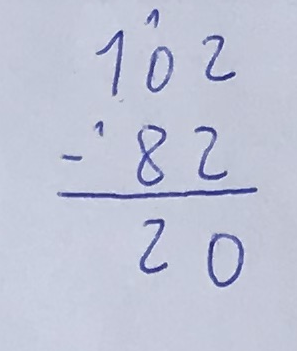 1
102
- 1 82
20